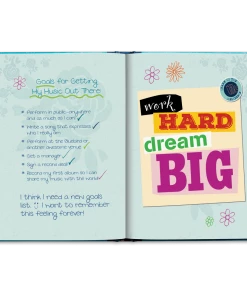 Goals for Getting
My Music Out There
Perform in public anywhere
and as much as I can
Write a song that expresses
who I really am
Perform at the
another awesome venue
Get a manager
Sign a record deal
Record my first album so I can
share my music with the world
I think I need a new goals
list. I want to remember
this feeling forever!
work
HARD
dream
BIG